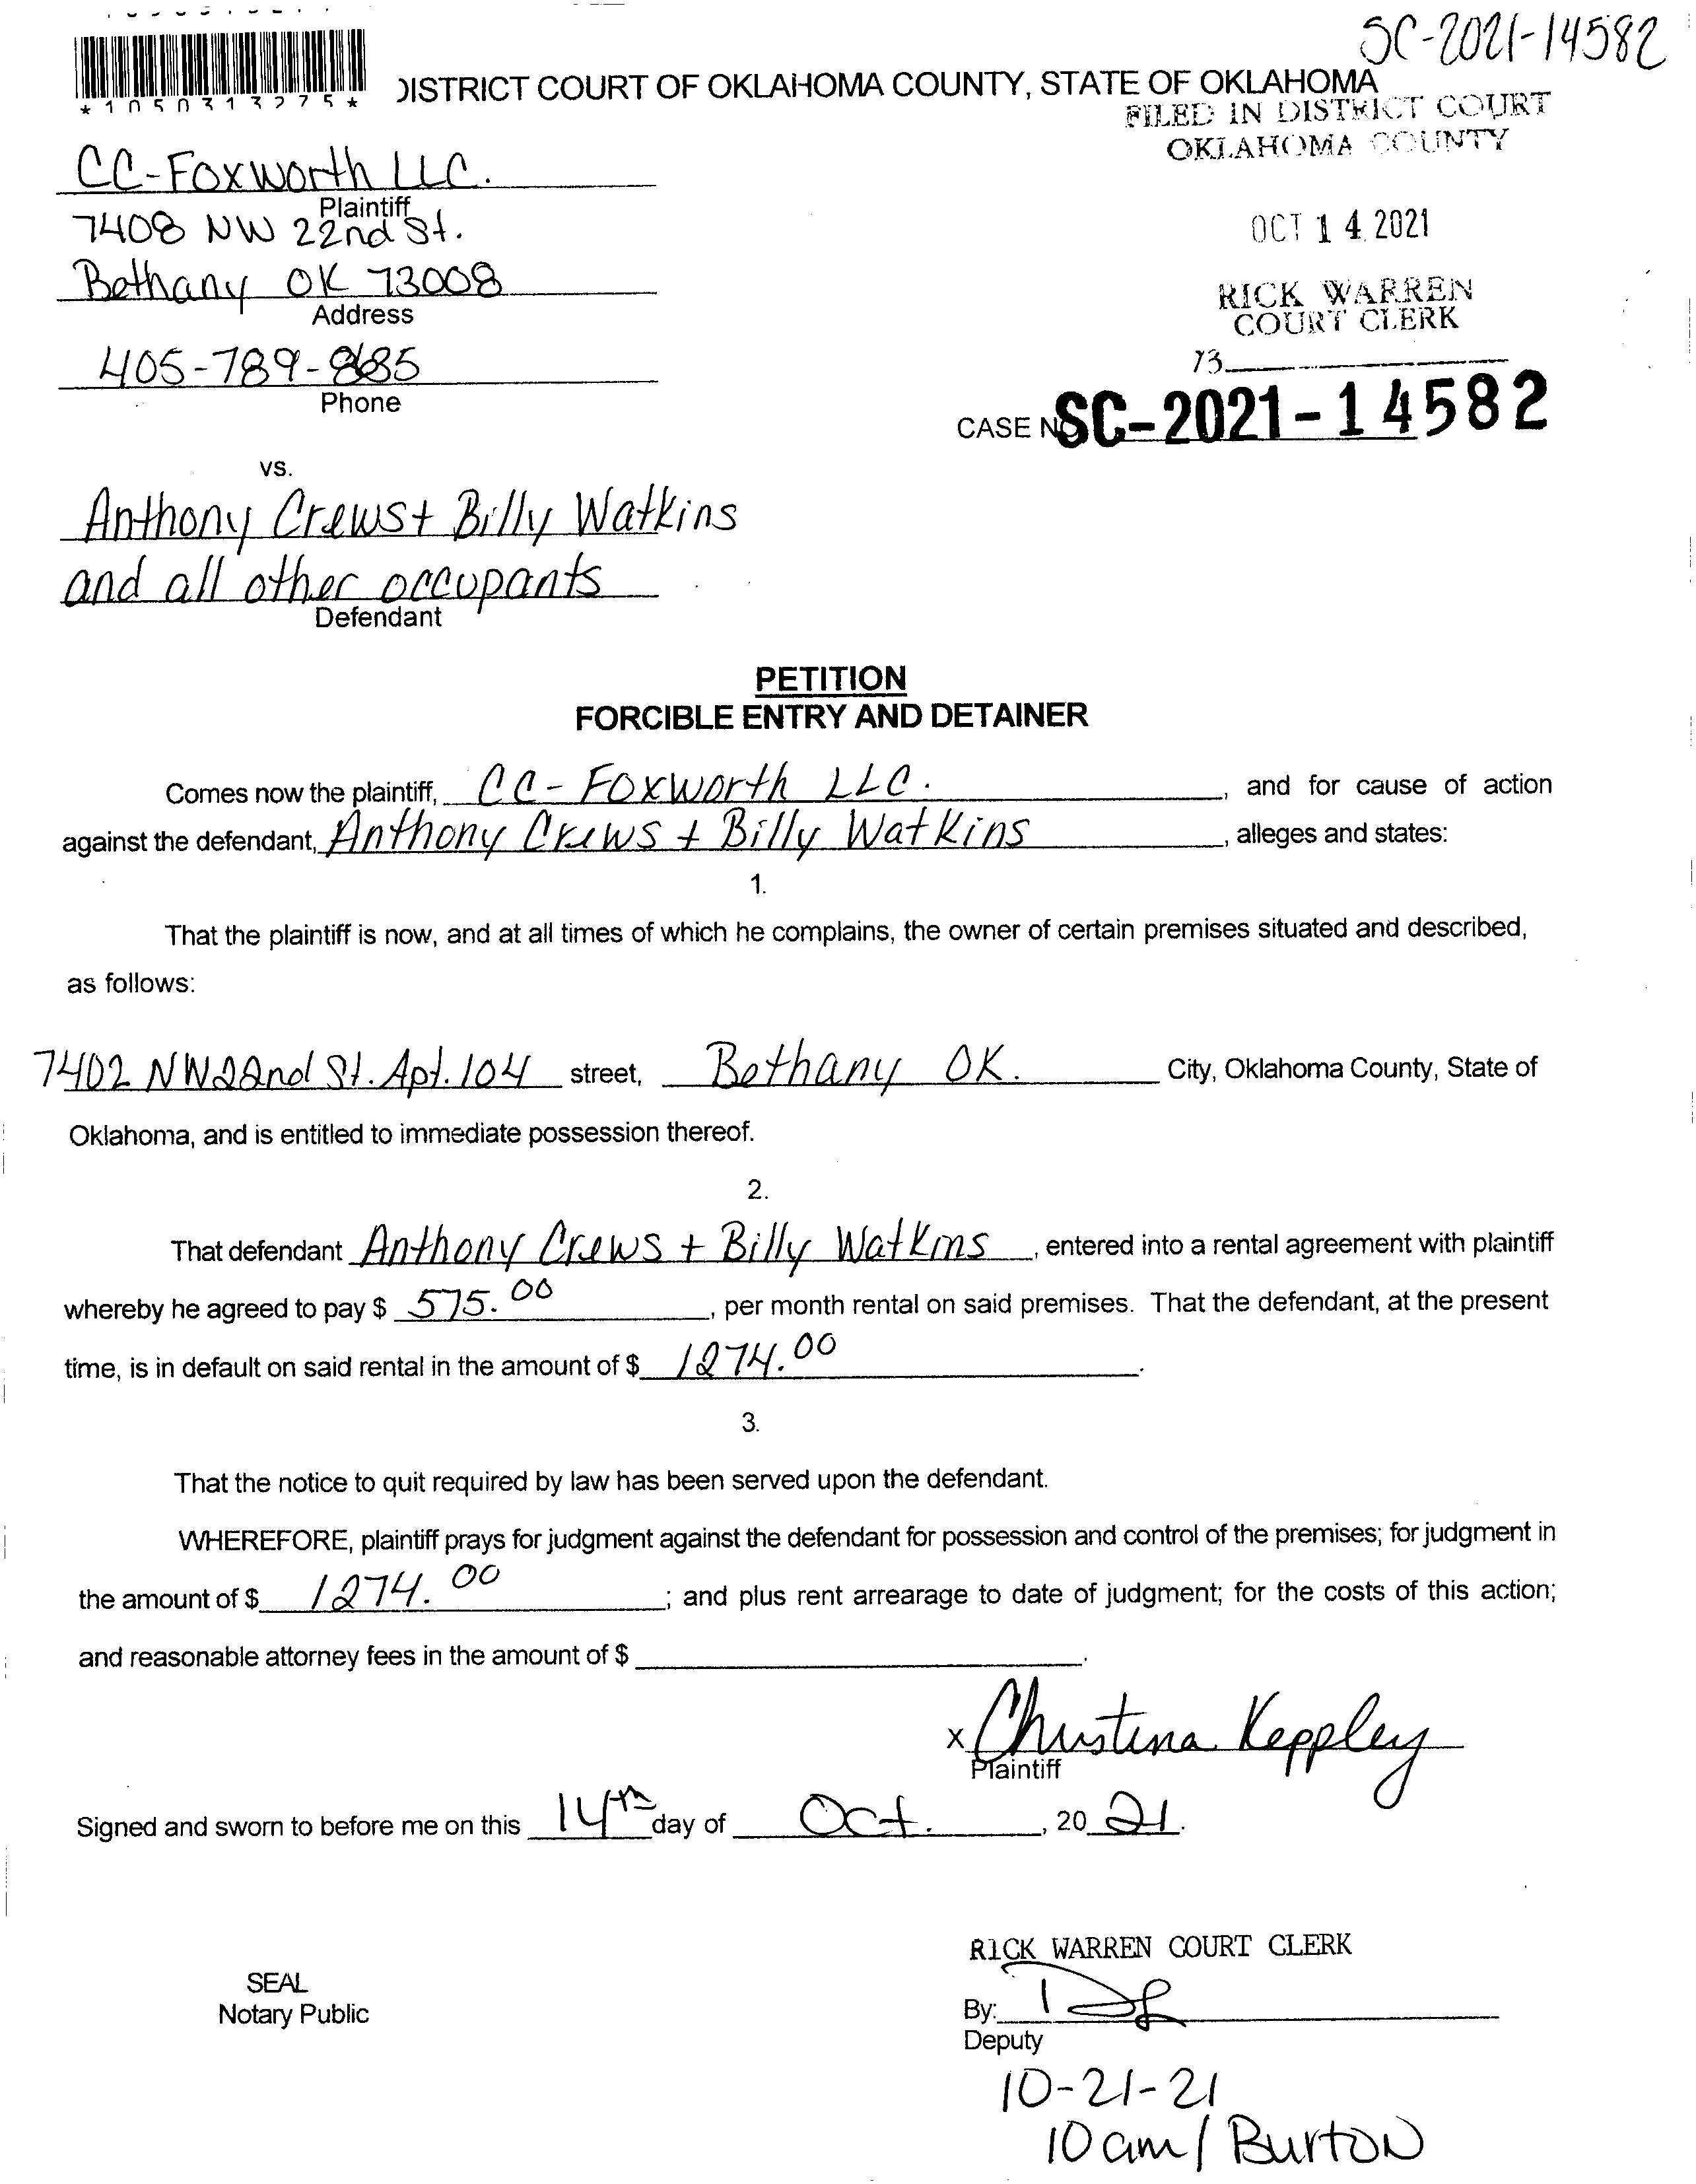 SC-2021-14582
*1050313275*
DISTRICT COURT OF OKLAHOMA COUNTY, STATE OF OKLAHOMA
FILED IN DISTRICT COURT
OKLAHOMA COUNTY
CC-Foxworth LLC.
Plaintiff
7408 NW 22nd St.
OCT 14 2021
Bethany OK 73008
Address
RICK WARREN
COURT CLERK
405-789-8685
Phone
73
CASE NO. SC-2021-14582
vs.
Anthony Crews + Billy Watkins
and all other occupants
Defendant
PETITION
FORCIBLE ENTRY AND DETAINER
Comes now the plaintiff, CC-Foxworth LLC. , and for cause of action
against the defendant, Anthony Crews + Billy Watkins , alleges and states:
1.
That the plaintiff is now, and at all times of which he complains, the owner of certain premises situated and described,
as follows:
7402 NW 22nd St. Apt. 104 street, Bethany OK. City, Oklahoma County, State of
Oklahoma, and is entitled to immediate possession thereof.
2.
That defendant Anthony Crews + Billy Watkins , entered into a rental agreement with plaintiff
whereby he agreed to pay $ 575.00 , per month rental on said premises. That the defendant, at the present
time, is in default on said rental in the amount of $ 1274.00 .
3.
That the notice to quit required by law has been served upon the defendant.
WHEREFORE, plaintiff prays for judgment against the defendant for possession and control of the premises; for judgment in
the amount of $ 1274.00 ; and plus rent arrearage to date of judgment; for the costs of this action;
and reasonable attorney fees in the amount of $ .
x Christina Keppley
Plaintiff
Signed and sworn to before me on this 14th day of Oct. , 20 21.
RICK WARREN COURT CLERK
SEAL
Notary Public
By:
Deputy
10-21-21
10am/Burton